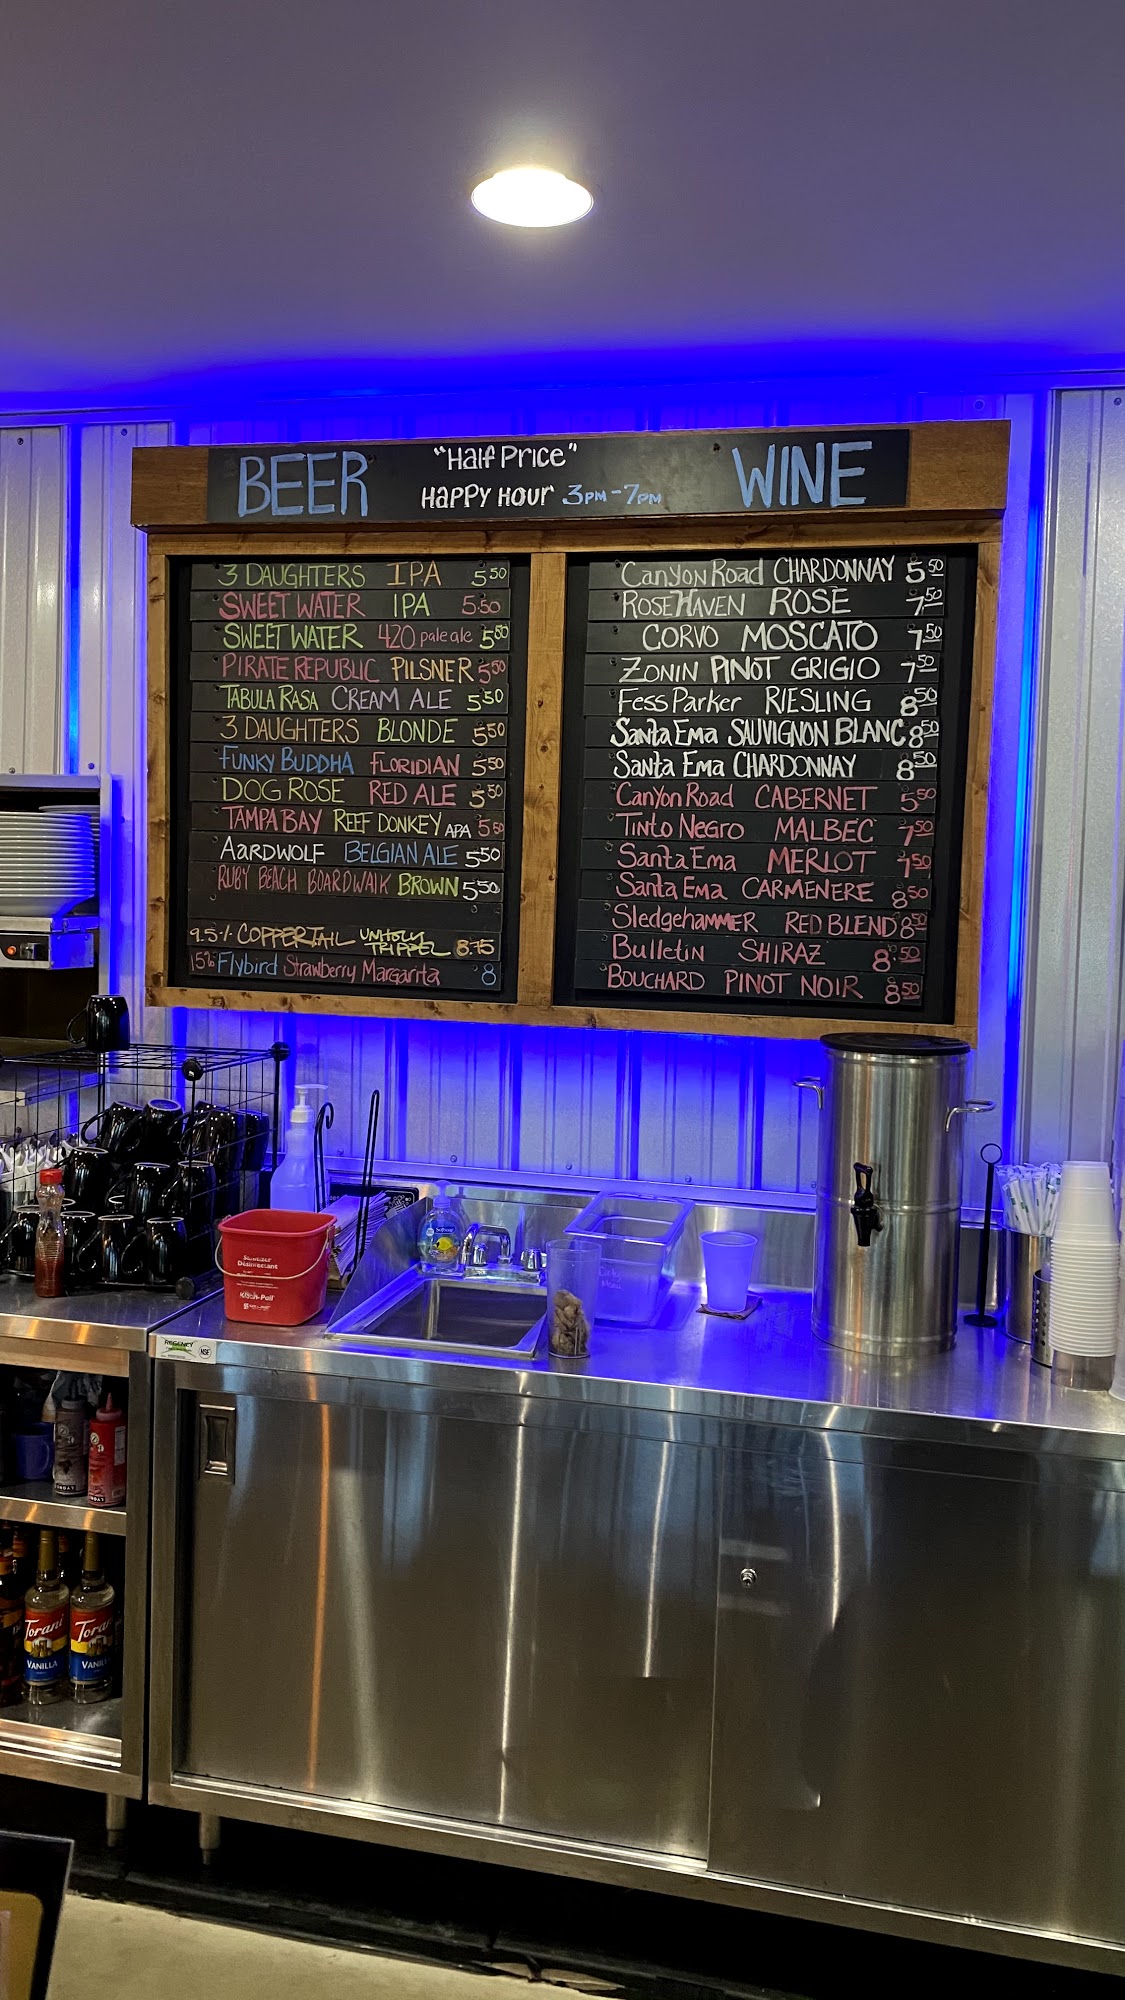 BEER
"Half Price"
HAPPY HOUR 3PM-7PM
WINE
3 DAUGHTERS IPA 5.50
SWEET WATER IPA 5.50
SWEET WATER 420 pale ale 5.50
PIRATE REPUBLIC PILSNER 5.50
TABULA RASA CREAM ALE 5.50
3 DAUGHTERS BLONDE 5.50
FUNKY BUDDHA FLORIDIAN 5.50
DOG ROSE RED ALE 5.50
TAMPA BAY REEF DONKEY APA 5.50
AARDWOLF BELGIAN ALE 5.50
RUBY BEACH BOARDWALK BROWN 5.50
9.5% COPPERTAIL UNHOLY TRIPPEL 8.75
15% Flybird Strawberry Margarita 8
Canyon Road CHARDONNAY 5.50
ROSEHAVEN ROSÈ 7.50
CORVO MOSCATO 7.50
ZONIN PINOT GRIGIO 7.50
Fess Parker RIESLING 8.50
Santa Ema SAUVIGNON BLANC 8.50
Santa Ema CHARDONNAY 8.50
Canyon Road CABERNET 5.50
Tinto Negro MALBEC 7.50
Santa Ema MERLOT 7.50
Santa Ema CARMENERE 8.50
Sledgehammer RED BLEND 8.50
Bulletin SHIRAZ 8.50
BOUCHARD PINOT NOIR 8.50
Disinfectant
Kleen-Pail
REGENCY
NSF
Torani
VANILLA
Torani
VANILLA